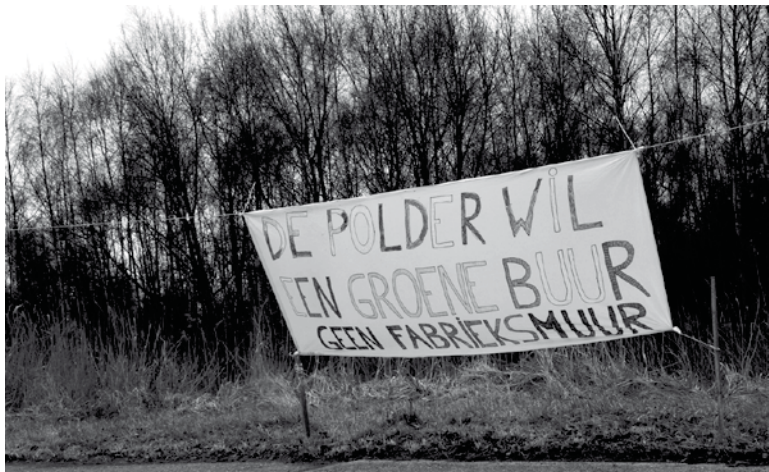 DE POLDER WiL
EEN GROENE BUUR
GEEN FABRiEKSMUUR